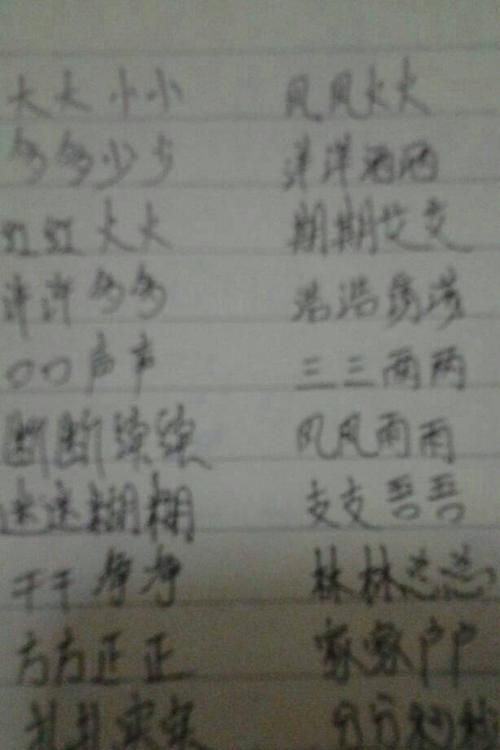 大大小小 风风火火
多多少少 洋洋洒洒
红红火火 期期艾艾
许许多多 浩浩荡荡
口口声声 三三两两
断断续续 风风雨雨
迷迷糊糊 支支吾吾
干干净净 林林总总
方方正正 家家户户
扎扎实实 分分秒秒